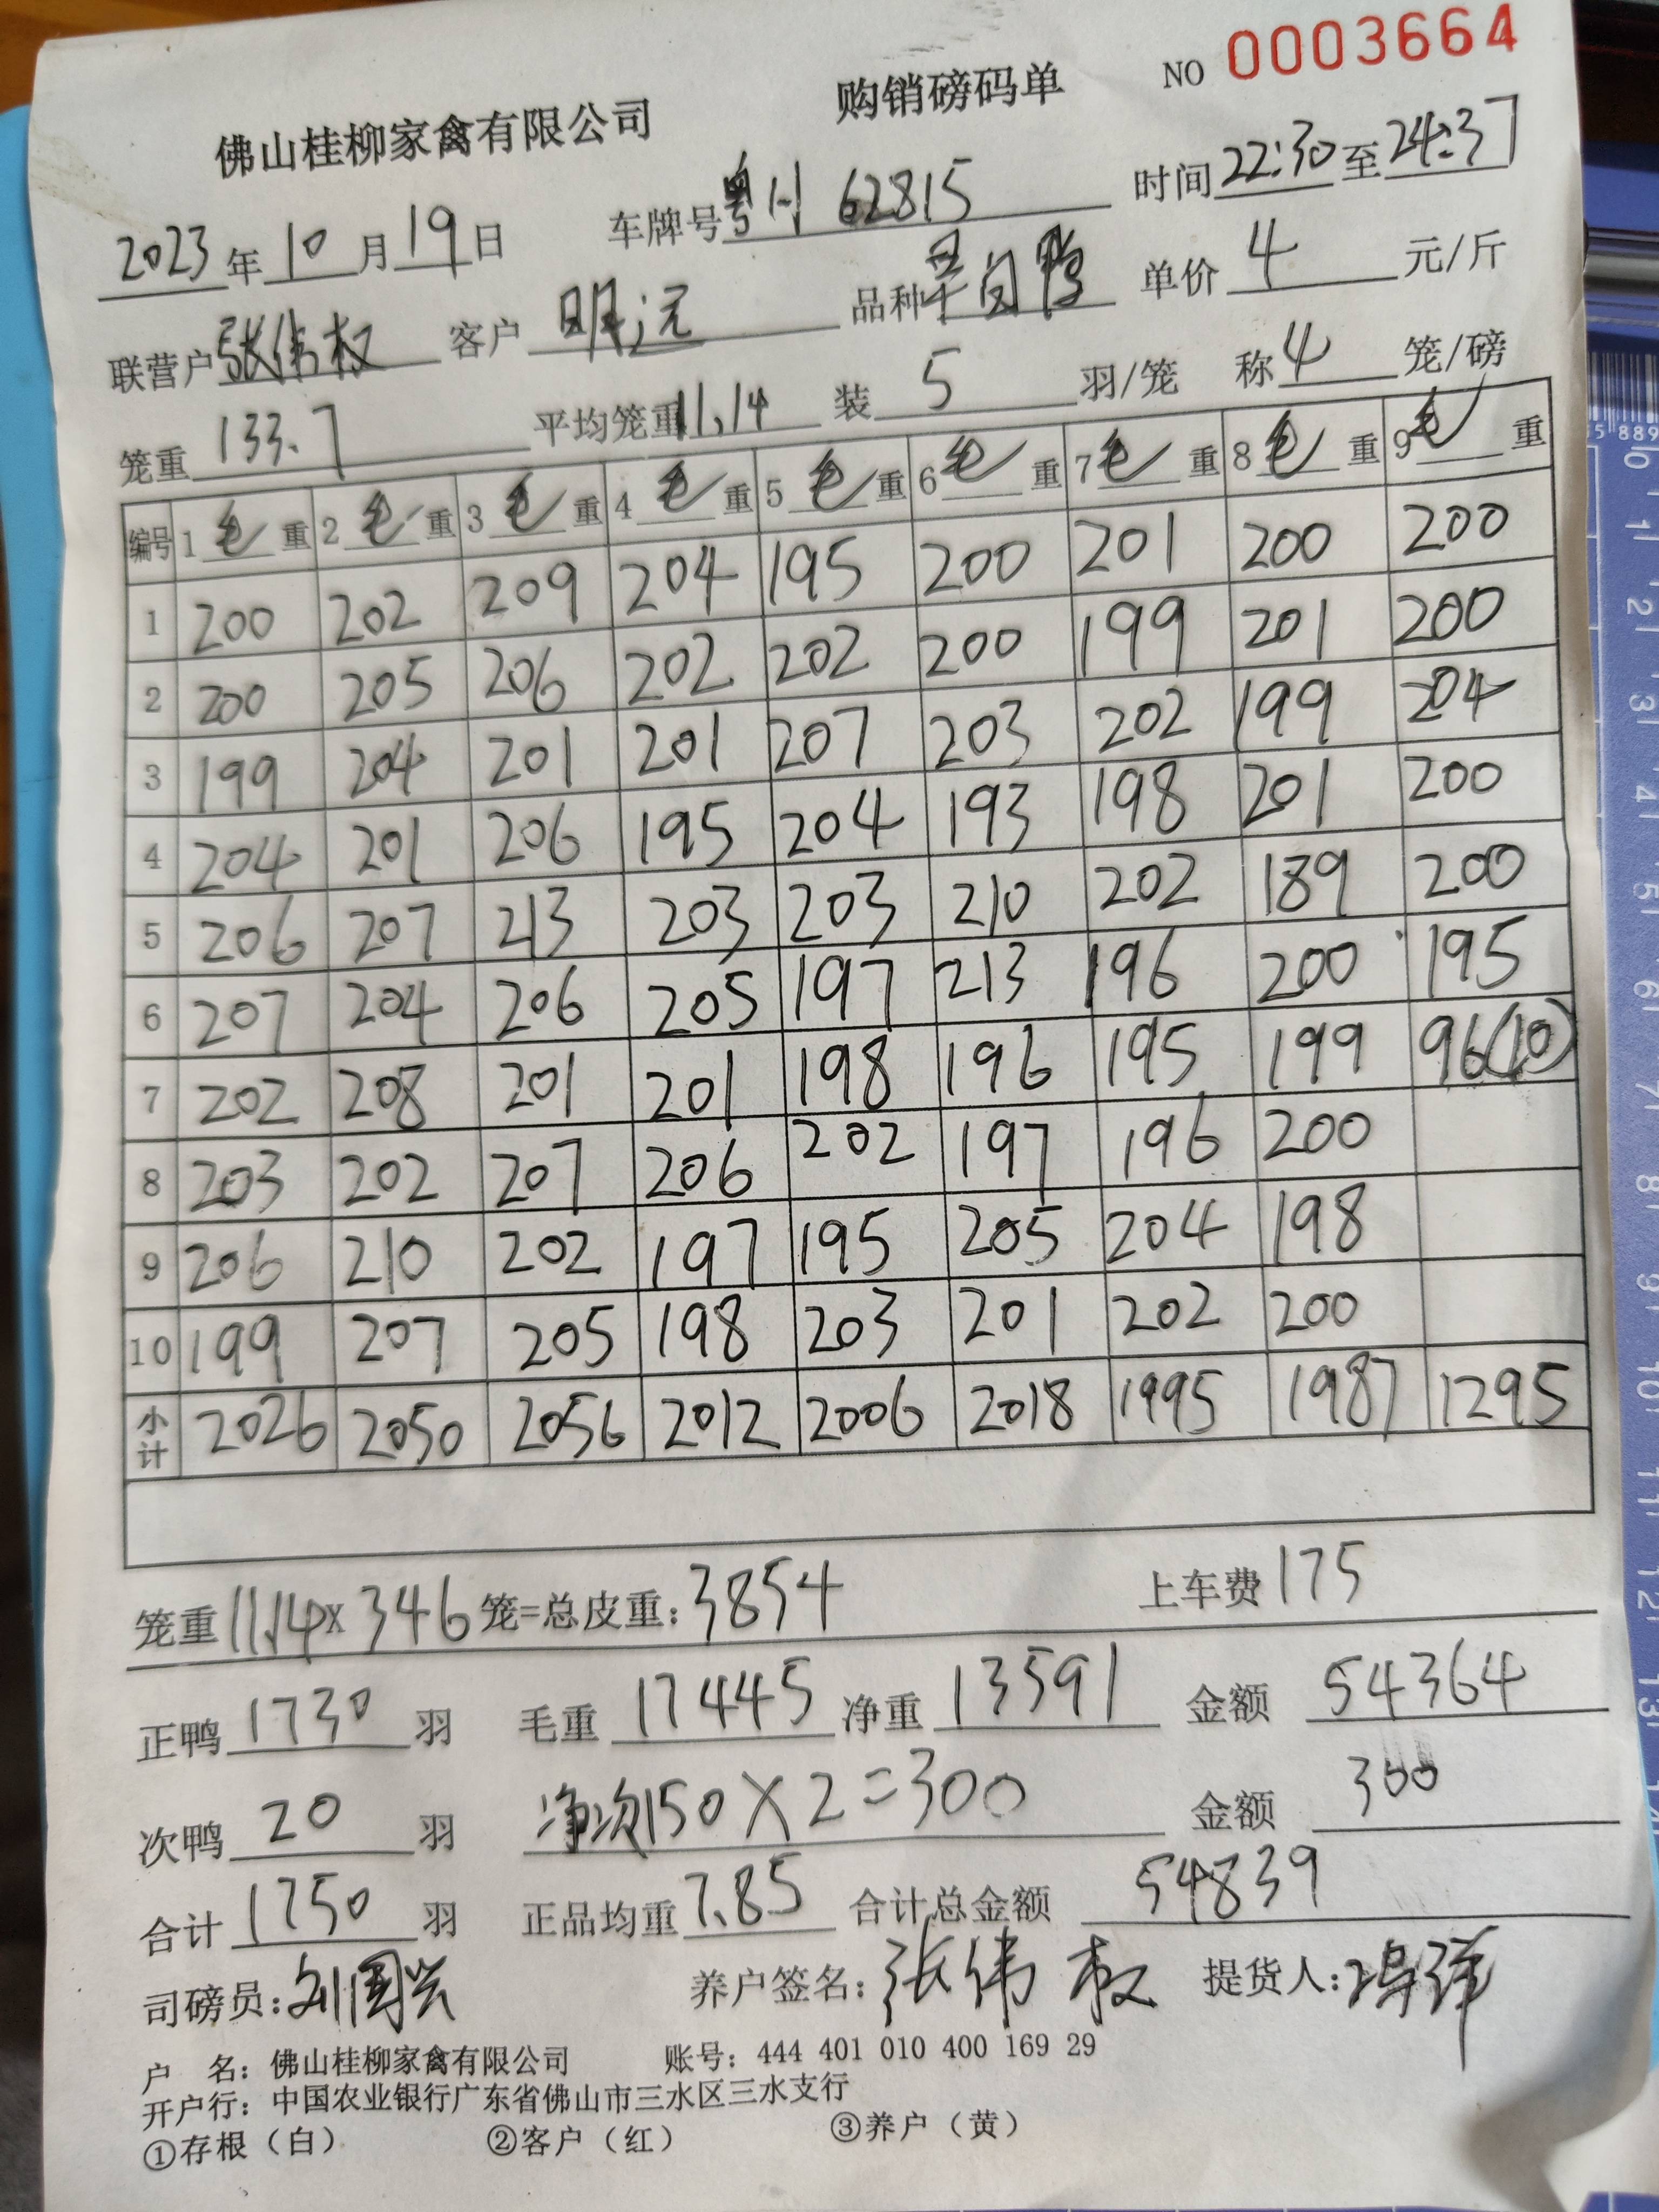 佛山桂柳家禽有限公司 购销磅码单 NO 0003664
2023年10月19日 车牌号粤H 62815 时间22:30至24:37
联营户张伟权 客户 明记 品种 白鸭 单价 4 元/斤
笼重 133.7 平均笼重11.14 装 5 羽/笼 称4 笼/磅
编号 1毛重 2毛重 3毛重 4毛重 5毛重 6毛重 7毛重 8毛重 9毛重
1 200 202 209 204 195 200 201 200 200
2 200 205 206 202 202 200 199 201 200
3 199 204 201 201 207 203 202 199 204
4 204 201 206 195 204 193 198 201 200
5 206 207 213 203 203 210 202 189 200
6 207 204 206 205 197 213 196 200 195
7 202 208 201 201 198 196 195 199 96(10)
8 203 202 207 206 202 197 196 200
9 206 210 202 197 195 205 204 198
10 199 207 205 198 203 201 202 200
小计 2026 2050 2056 2012 2006 2018 1995 1987 1295
笼重11.14x 346笼=总皮重:3854 上车费175
正鸭1730羽 毛重 17445 净重 13591 金额 54364
次鸭 20 羽 净次150×2=300 金额 300
合计 1750 羽 正品均重7.85 合计总金额 54839
司磅员:刘国兴 养户签名:张伟权 提货人:
户 名: 佛山桂柳家禽有限公司 账号: 444 401 010 400 169 29
开户行: 中国农业银行广东省佛山市三水区三水支行
①存根(白) ②客户(红) ③养户(黄)
5 889
0 1 2 3 4 5 6 7 8 9 10 11 12 13